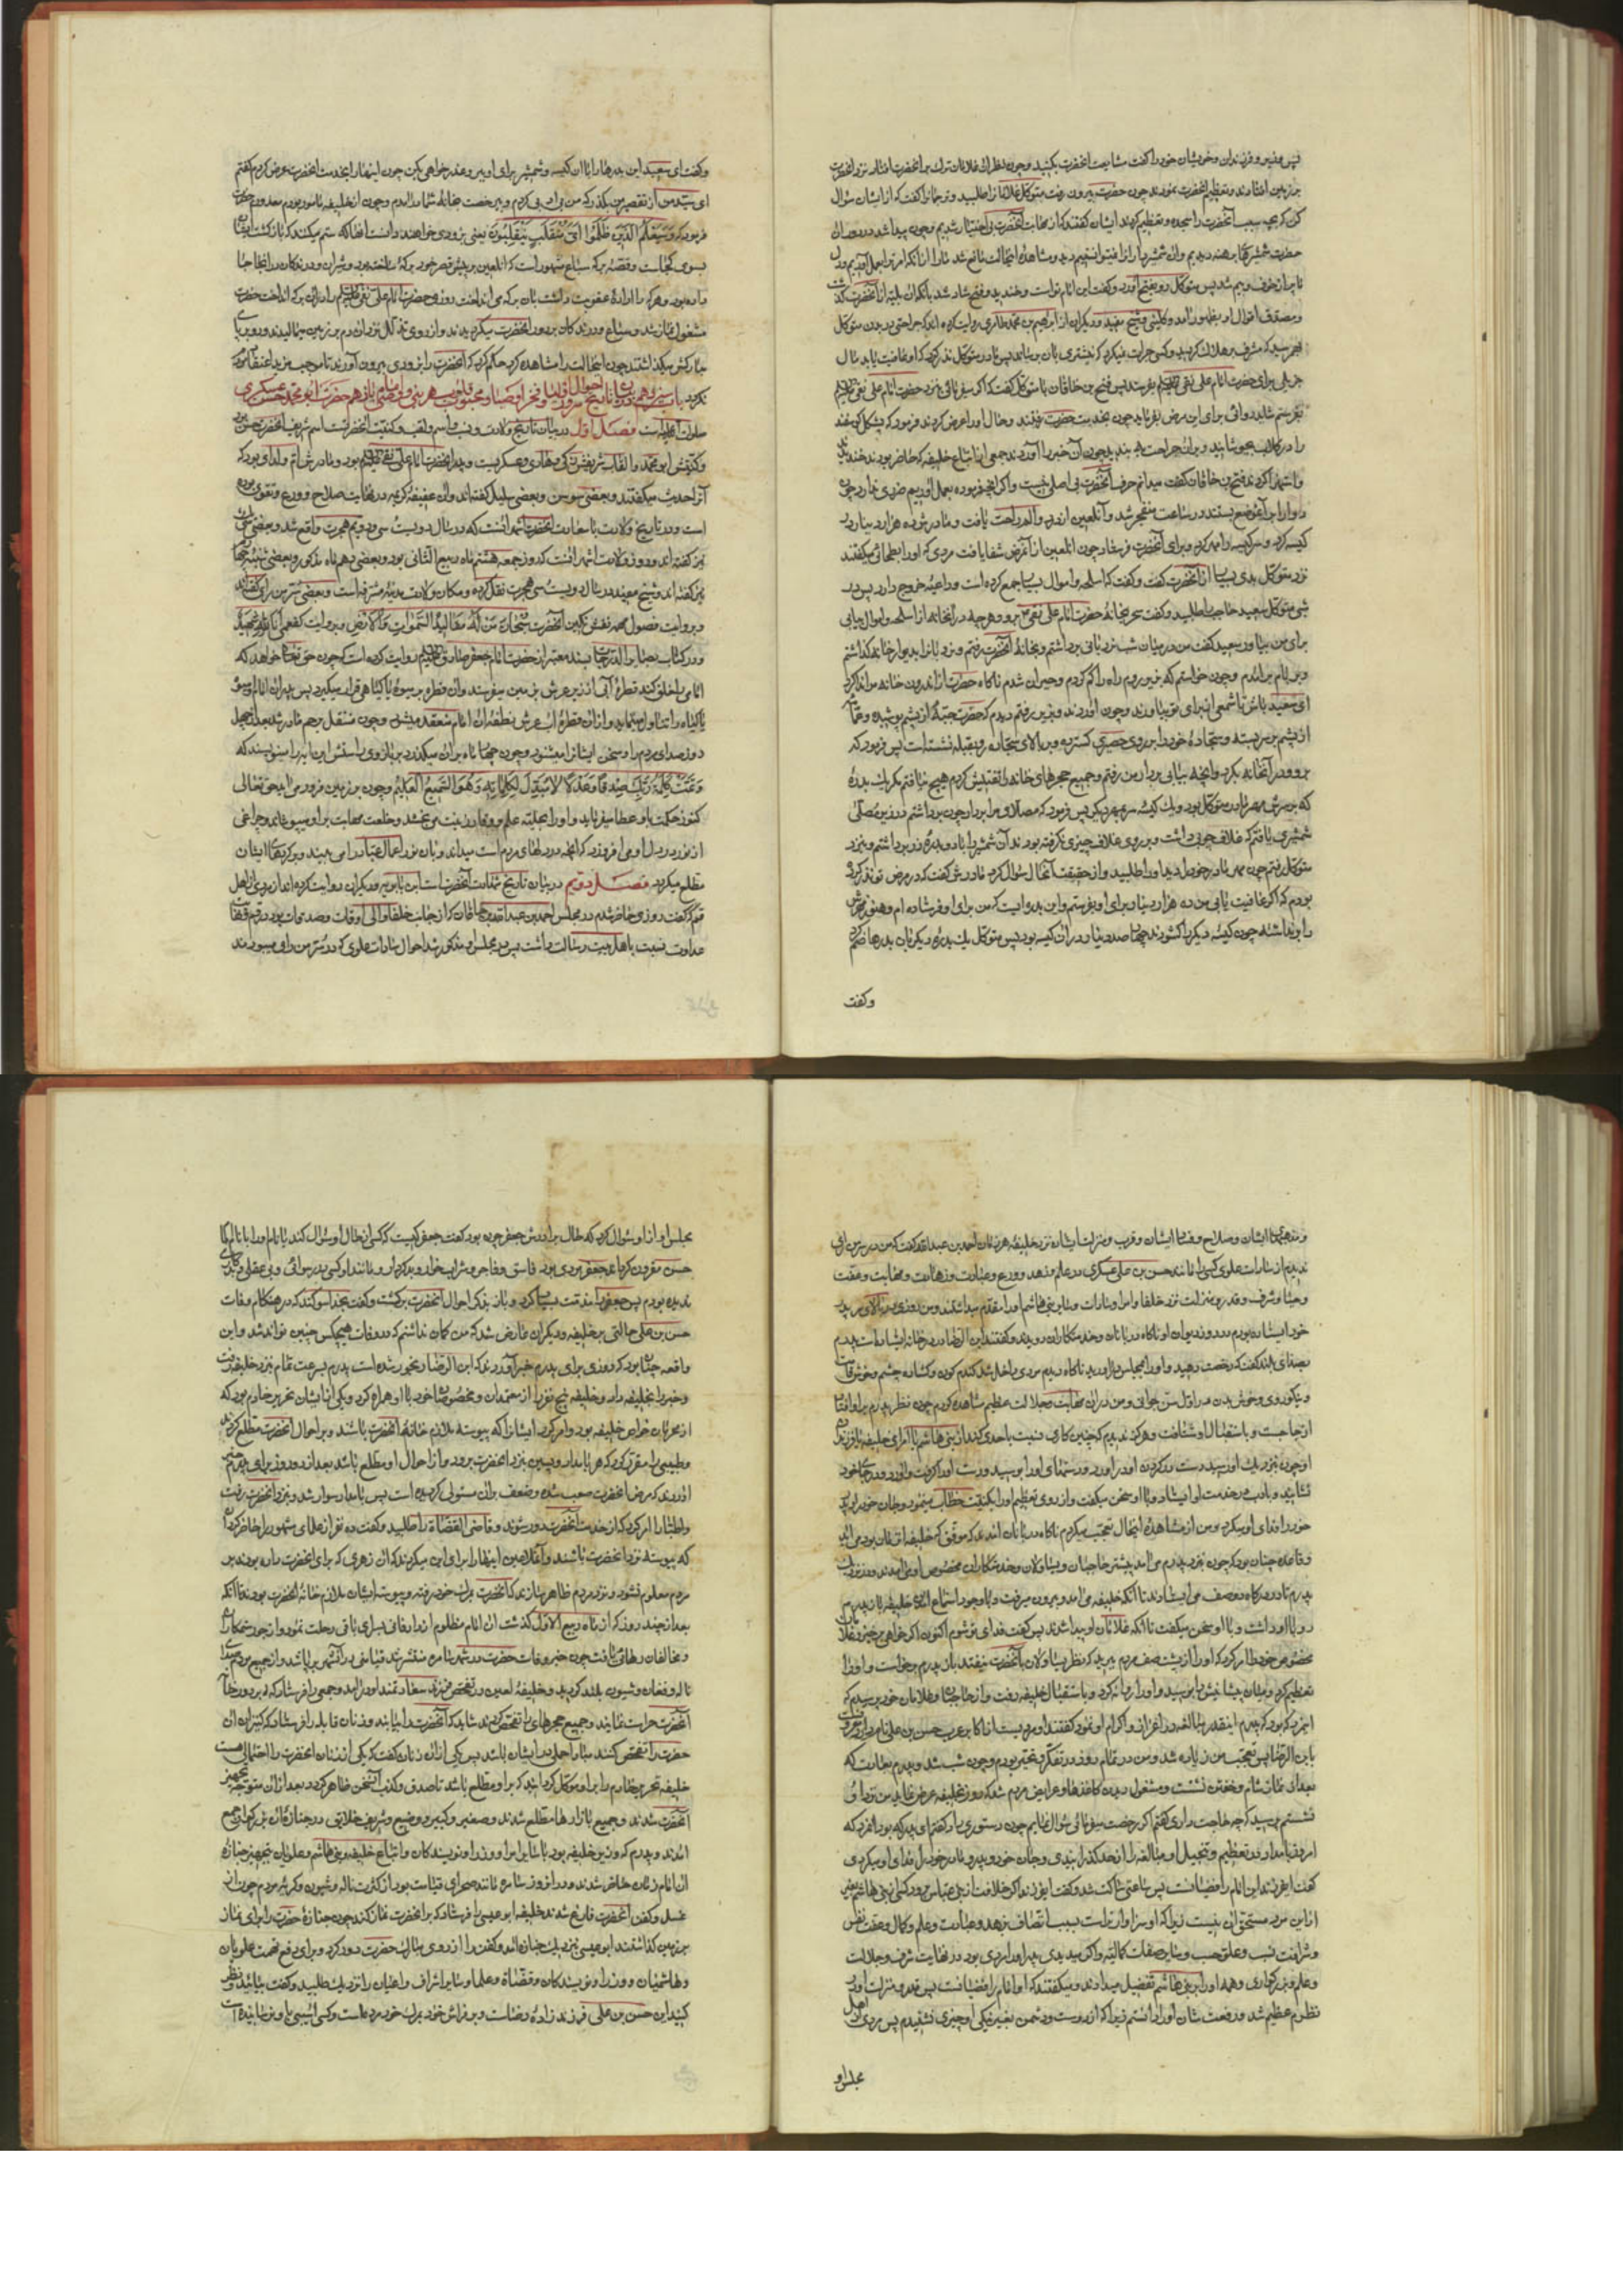 پس وزیر و فرزندان و خویشان خود را گفت مشایعت آنحضرت بکنید و چون نظر آن غلامان ترک بر آنحضرت افتاد نزد آنحضرت
بر زمین افتادند و تعظیم آنحضرت نمودند چون حضرت بیرون رفت متوکل غلامانرا طلبید و ترجمانرا گفت که از ایشان سؤال
کن که بچه سبب آنحضرت را سجده و تعظیم کردند ایشان گفتند که از مهابت آنحضرت بی اختیار شدیم و چون پیدا شد در دور آن
حضرت شمشیرهای برهنه دیدیم و آن شمشیرداران را نمیتوانستیم دید و مشاهده اینحالت مانع شد ما را از آنکه امر ترا بعمل آوریم و دل
ما پر از خوف و بیم شد پس متوکل رو بفتح آورد و گفت این امام تو است و خندید و فتح شاد شد بآنکه آن بلیه از آنحضرت گذشت
و مصدق اقوال او بظهور آمد و کلینی و شیخ مفید و دیگران از ابراهیم بن محمد طاهری روایت کرده اند که جراحتی در بدن متوکل
بهم رسید که مشرف بر هلاک گردید و کسی جرأت نمیکرد که نیشتری بآن برساند پس مادر متوکل نذر کرد که اگر او عافیت یابد مال
جزیلی برای حضرت امام علی نقی بفرستد پس فتح بن خاقان با متوکل گفت که اگر میفرمائی نزد حضرت امام علی نقی
بفرستم شاید دوائی برای این مرض بفرماید چون بخدمت حضرت رفتند و حال او را عرض کردند فرمود که پشکل گوسفند
را در گلاب بخیسانید و بر آن جراحت ببندید چون آن خبر را آوردند جمعی از اتباع خلیفه که حاضر بودند خندیدند
و استهزا کردند فتح بن خاقان گفت میدانم حرف آنحضرت بی اصل نیست و اگر آنچه فرموده بعمل آوریم ضرری ندارد چون
دوا را بر آنموضع بستند در ساعت منفجر شد و آنلعین از درد و الم راحت یافت و مادرش ده هزار دینار در
کیسه کرد و سر کیسه را مهر کرد و برای آنحضرت فرستاد چون آنلعین از آنمرض شفا یافت مردی که او را بطحائی میگفتند
نزد متوکل بدی بسیار از آنحضرت گفت و گفت که اسلحه و اموال بسیار جمع کرده است و داعیه خروج دارد پس در
شبی متوکل سعید حاجب را طلبید و گفت بیخبر بخانه حضرت امام علی نقی برو و هر چه در آنخانه از اسلحه و اموال بیابی
برای من بیاور سعید گفت من در میان شب نردبانی برداشتم و بخانه آنحضرت رفتم و نردبانرا بدیوار خانه گذاشتم
و بر بام برآمدم و چون خواستم که بزیر روم راه را گم کردم و حیران شدم ناگاه حضرت از اندرون خانه مرا ندا کرد
ای سعید باش تا شمعی از برای تو بیاورند و چون آوردند و بزیر رفتم دیدم که حضرت جبه از پشم پوشیده و عمامه
از پشم بر سر بسته و سجاده خود را بر روی حصیری گسترده و بر بالای سجاده رو بقبله نشسته است پس فرمود که
برو و در اینخانه بگرد و آنچه بیابی بردار من رفتم و جمیع حجرهای خانه را تفتیش کردم هیچ نیافتم مگر یک بدره
که بر سرش مهر مادر متوکل بود و یک کیسه سر بمهر دیگر پس فرمود که مصلای مرا بردار چون برداشتم در زیر مصلی
شمشیری یافتم که غلاف چوبی داشت و بر روی غلاف چیزی نگرفته بودند آن شمشیر را با دو بدره زر برداشتم و بنزد
متوکل رفتم چون مهر مادر خود را دید او را طلبید و از حقیقت آنحال سؤال کرد مادرش گفت که در مرض تو نذر کرده
بودم که اگر عافیت یابی من ده هزار دینار برای او بفرستم و این بدره ایست که من برای او فرستاده ام و هنوز مهرش
را برنداشته چون کیسه دیگر را گشودند چهارصد دینار در آن کیسه بود پس متوکل یک بدره دیگر بآن بدرها ضم کرد
و گفت
و گفت ای سعید این بدرها را با آن کیسه و شمشیر برای او ببر و عذر خواهی بکن چون اینها را بخدمت آنحضرت عرض کردم گفتم
ای سید من از تقصیر من بگذر که من بی ادبی کردم و بی رخصت بخانه شما درآمدم و چون از خلیفه مأمور بودم معذورم حضرت
فرمود که وَسَيَعْلَمُ الَّذِينَ ظَلَمُوا أَيَّ مُنْقَلَبٍ يَنْقَلِبُونَ یعنی بزودی خواهند دانست آنها که ستم میکنند که بازگشت ایشان
بسوی کجاست و قصه برکه سباع مشهور است که آنلعین در پیش قصر خود برکه ساخته بود و شیران و درندگان در آنجا جا
داده بود و هر که را اراده عقوبت داشت بآن برکه می انداخت روزی حضرت امام علی نقی را در آن برکه انداخت حضرت
مشغول نماز شد و سباع و درندگان بر دور آنحضرت میگردیدند و از روی تذلل نزد او دم بر زمین میمالیدند و رو بر پای
مبارکش میگذاشتند چون اینحالت را مشاهده کرد حکم کرد که آنحضرت را بزودی بیرون آورند تا موجب مزید اعتقاد مردم
نگردد باب سیزدهم در بیان تاریخ احوال سرور اتقیا و فخر اوصیا و محبوب قلوب هر نبی و وصی امام یازدهم حضرت ابو محمد حسن عسکری
صلوات الله علیه است فصل اول در بیان تاریخ ولادت و نسب و اسم و لقب و کنیت آنحضرتست اسم شریف آنحضرت حسن بود
و کنیتش ابو محمد و القاب شریفش زکی و هادی و عسکریست و پدر آنحضرت امام علی نقی بود و مادرش ام ولدی بود که
آنرا حدیث میگفتند و بعضی سوسن و بعضی سلیل گفته اند و آن عفیفه کریمه در نهایت صلاح و ورع و تقوی بوده
است و در تاریخ ولادت با سعادت آنحضرت اشهر آنست که در سال دویست سی و دویم هجرت واقع شد و بعضی سی و یک
نیز گفته اند و روز ولادت اشهر آنست که در روز جمعه هشتم ماه ربیع الثانی بود و بعضی دهم ماه مذکور و بعضی شب چهارم
نیز گفته اند و شیخ مفید در سال دویست و سی هجرت نقل کرده و مکان ولادت مدینه مشرفه است و بعضی سر من رای گفته اند
و بروایت فصول مهمه نقش نگین آنحضرت سُبْحَانَ مَنْ لَهُ مَقَالِيدُ السَّمٰوَاتِ وَالْأَرْضِ و بروایت کفعمی انا لله شهید
و در کتاب بصائر الدرجات بسند معتبر از حضرت امام جعفر صادق روایت کرده است که چون حق تعالی خواهد که
امامی را خلق کند قطره آبی از زیر عرش بزمین میفرستد و آن قطره بر میوه یا گیاهی قرار میگیرد پس پدر آن امام آن میوه
یا گیاه را تناول مینماید و از آن قطره آب عرش نطفه آن امام منعقد میشود و چون منتقل برحم مادر شد بعد از چهل
روز صدای مردم را و سخن ایشانرا میشنود و چون چهار ماه بر آن میگذرد بر بازوی راستش این آیه را مینویسند که
وَتَمَّتْ كَلِمَةُ رَبِّكَ صِدْقًا وَعَدْلًا لَا مُبَدِّلَ لِكَلِمَاتِهِ وَهُوَ السَّمِيعُ الْعَلِيمُ و چون بر زمین فرود می آید حق تعالی
کنوز حکمت باو عطا میفرماید و او را بحلیه علم و وقار زینت می بخشد و خلعت مهابت بر او میپوشاند و چراغی
از نور در دل او می افروزد که آنچه در دلهای مردم است میداند و بآن نور اعمال عباد را می بیند و بر کردهای ایشان
مطلع میگردد فصل دویم در بیان تاریخ شهادت آنحضرت است ابن بابویه و دیگران روایت کرده اند از مردی از اهل
قم که گفت روزی حاضر شدم در مجلس احمد بن عبیدالله بن خاقان که از جانب خلفا والی اوقات و صدقات بود در قم و نهایت
عداوت نسبت باهل بیت رسالت داشت پس در مجلس او مذکور شد احوال سادات علوی که در سر من رای میبودند
و مذهبهای ایشان و صلاح و فساد ایشان و قرب و منزلت ایشان نزد خلیفه هر زمان احمد بن عبیدالله گفت که من در سر من رای
ندیدم از سادات علوی کسی را مانند حسن بن علی عسکری در علم و زهد و ورع و عبادت و زهادت و مهابت و عفت
و حیا و شرف و قدر و منزلت نزد خلفا و امرا و سادات و سایر بنی هاشم او را مقدم میداشتند و من روزی بر بالای سر پدر
خود ایستاده بودم در روز دیوان او ناگاه دربانان و خدمتکاران دویدند و گفتند ابن الرضا بر در خانه ایستاده است پدرم
بصدای بلند گفت که رخصت دهید و او را بمجلس درآورید ناگاه دیدم مردی داخل شد گندم گون و گشاده چشم و خوش قامت
و نیکو روی و خوش بدن در اول سن جوانی و من در آن مهابت و جلالت عظیم مشاهده کردم چون نظر پدرم بر او افتاد
از جا جست و باستقبال او شتافت و هرگز ندیدم که چنین کاری نسبت باحدی کند از بنی هاشم یا امرای خلیفه یا فرزندان
او چون بنزدیک او رسید دست در گردن او درآورد و دستهای او را بوسید و دست او را گرفت و آورد و در جای خود
نشانید و بادب در خدمت او ایستاد و با او سخن میگفت و از روی تعظیم او را بکنیت خطاب مینمود و جان خود و پدر
خود را فدای او میکرد و من از مشاهده اینحال تعجب میکردم ناگاه دربانان آمدند که موفق که خلیفه آن زمان بود می آید
و قاعده چنان بود که چون بنزد پدرم می آمد پیشتر حاجبان و یساولان و خدمتکاران مخصوص او می آمدند و در نزدیک
پدرم تا درگاه دو صف می ایستادند تا آنکه خلیفه می آمد و بیرون میرفت و با وجود استماع آمدن خلیفه باز پدرم
رو باو داشت و با او سخن میگفت تا آنکه غلامان او پیدا شدند پس گفت فدای تو شوم اکنون اگر خواهی برخیز و غلامان
مخصوص خود را امر کرد که او را از پشت صف مردم ببرید که نظر یساولان بر آنحضرت نیفتد باز پدرم برخواست و او را
تعظیم کرد و میان پیشانیش را بوسید و او را روانه کرد و باستقبال خلیفه رفت و از حاجبان و غلامان خود پرسیدم که
این مرد که بود که پدرم اینقدر مبالغه در اعزاز و اکرام او نمود گفتند او مردیست از اکابر عرب حسن بن علی نام دارد معروف
بابن الرضا پس تعجب من زیاده شد و من در تمام روز در تفکر و تحیر بودم و چون شب شد و پدرم بعادت که
بعد از نماز شام و خفتن نشست و مشغول دیدن کاغذها و عرایض مردم شد که در روز بخلیفه عرض نماید من نزد او
نشستم پرسید که چه حاجت داری گفتم اگر رخصت میفرمائی سؤال نمایم چون دستوری داد گفتم ای پدر که بود آنمرد که
امروز بامداد در تعظیم و تبجیل او مبالغه را از حد گذرانیدی و جان خود و پدر و مادر خود را فدای او میکردی
گفت ای فرزند این امام رافضیانست پس ساعتی ساکت شد و گفت ای فرزند اگر خلافت از بنی عباس بدر رود کسی از بنی هاشم بغیر
از این مرد مستحق آن نیست زیرا که او سزاوار آنست بسبب اتصاف زهد و عبادت و علم و کمال و عفت نفس
و شرافت نسب و علو حسب و سایر صفات کمالیه و اگر میدیدی پدر او را مردی بود در نهایت شرف و جلالت
و علم و بزرگواری و همه او را بر بنی هاشم تفضیل میدادند و میگفتند که او امام رافضیانست پس قدر و منزلت او در
نظرم عظیم شد و رفعت شان او را دانستم زیرا که از دوست و دشمن بغیر نیکی او چیزی نشنیدم پس مردی از اهل
مجلس او
مجلس او از او سؤال کرد که حال برادرش جعفر چون بود گفت جعفر کیست که کسی از حال او سؤال کند یا نام او را با نام امام
حسن مقرون گرداند جعفر مردی بود فاسق و فاجر و شرابخوار و بدکردار و مانند او کسی در رسوائی و بی عقلی و بدکاری
ندیده بودم پس جعفر را مذمت بسیار کرد و باز بذکر احوال آنحضرت برگشت و گفت بخدا سوگند که در هنگام وفات
حسن بن علی حالتی بر خلیفه و دیگران عارض شد که من گمان نداشتم که در وفات هیچکس چنین تواند شد و این
واقعه چنان بود که روزی برای پدرم خبر آوردند که ابن الرضا رنجور شده است پدرم بسرعت تمام نزد خلیفه رفت
و خبر را بخلیفه داد و خلیفه پنج نفر را از معتمدان و مخصوصان خود با او همراه کرد و یکی از ایشان نحریر خادم بود که
از محرمان خاص خلیفه بود و امر کرد ایشانرا که پیوسته ملازم خانه آنحضرت باشند و بر احوال آنحضرت مطلع گردند
و طبیبی را مقرر کرد که هر بامداد و پسین بنزد آنحضرت برود و از احوال او مطلع باشد بعد از دو روز برای پدرم خبر
آوردند که مرض آنحضرت صعب شده و ضعف بر آن مستولی گردیده است پس بامداد سوار شد و بنزد آنحضرت رفت
و اطبا را امر کرد که از خدمت آنحضرت دور نشوند و قاضی القضاة را طلبید و گفت ده نفر از علمای مشهور را حاضر گردان
که پیوسته نزد آنحضرت باشند و آنملاعین اینها را برای این میکردند که آن زهری که برای آنحضرت داده بودند بر
مردم معلوم نشود و نزد مردم ظاهر سازند که آنحضرت بمرگ خود رفته و پیوسته ایشان ملازم خانه آنحضرت بودند تا آنکه
بعد از چند روز که از ماه ربیع الاول گذشت آن امام مظلوم از دار فانی بسرای باقی رحلت نمود و از جور ستمکاران
و مخالفان رهائی یافت چون خبر وفات حضرت در شهر سامره منتشر شد قیامتی در آنشهر برپا شد و از جمیع مردم صدای
ناله و فغان و شیون بلند گردید و خلیفه لعین در تفحص فرزند سعادتمند او درآمد و جمعی را فرستاد که بر دور خانه
آنحضرت حراست نمایند و جمیع حجرهای را تفحص کردند شاید که آنحضرت را بیابند و زنان قابله را فرستاد که کنیزان آن
حضرت را تفحص کنند مبادا حملی در ایشان باشد پس یکی از آن زنان گفت که یکی از کنیزان آنحضرت را احتمال حملی هست
خلیفه نحریر خادم را بر او موکل گردانید که بر او مطلع باشد تا صدق و کذب آنسخن ظاهر گردد بعد از آن متوجه تجهیز
آنحضرت شدند و جمیع بازارها مطلع شدند و صغیر و کبیر و وضیع و شریف خلایق در جنازه آن بزرگوار جمع
آمدند و پدرم که وزیر خلیفه بود با سایر امرا و وزرا و نویسندگان و اتباع خلیفه و بنی هاشم و علویان بتجهیز جنازه
آن امام زمان حاضر شدند و در آنروز سامره مانند صحرای قیامت بود از کثرت ناله و شیون و گریه مردم چون از
غسل و کفن آنحضرت فارغ شدند خلیفه ابو عیسی را فرستاد که بر آنحضرت نماز کند چون جنازه حضرت را برای نماز
بر زمین گذاشتند ابو عیسی بنزدیک جنازه آمد و کفن را از روی مبارک حضرت دور کرد و برای دفع تهمت علویان
و هاشمیان و وزرا و نویسندگان و قضاة و علما و سایر اشراف و اعیان را نزدیک طلبید و گفت بیائید و نظر
کنید این حسن بن علی فرزند زاده رضاست و بر فراش خود بمرگ خود مرده است و کسی آسیبی باو نرسانیده است